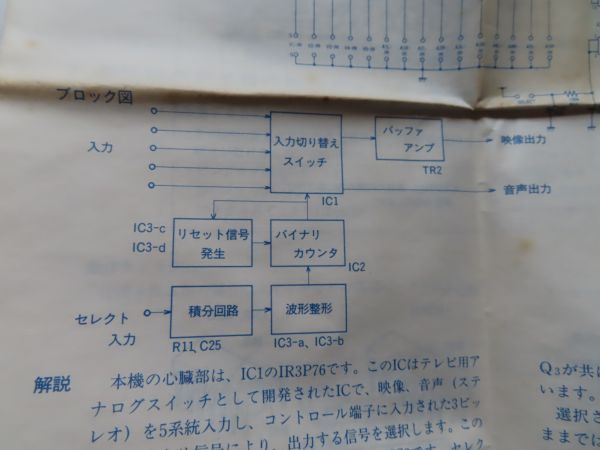 SELECT
ブロック図
入力
入力切り替え
スイッチ
IC1
バッファ
アンプ
TR2
映像出力
音声出力
IC3-c
IC3-d
リセット信号
発生
バイナリ
カウンタ
IC2
セレクト
入力
積分回路
R11、C25
波形整形
IC3-a、IC3-b
解説 本機の心臓部は、IC1のIR3P76です。このICはテレビ用ア
ナログスイッチとして開発されたICで、映像、音声(ステ
レオ)を5系統入力し、コントロール端子に入力された3ビッ
信号により、出力する信号を選択します。この
Q3が共に
います。
選択さ
ままでは